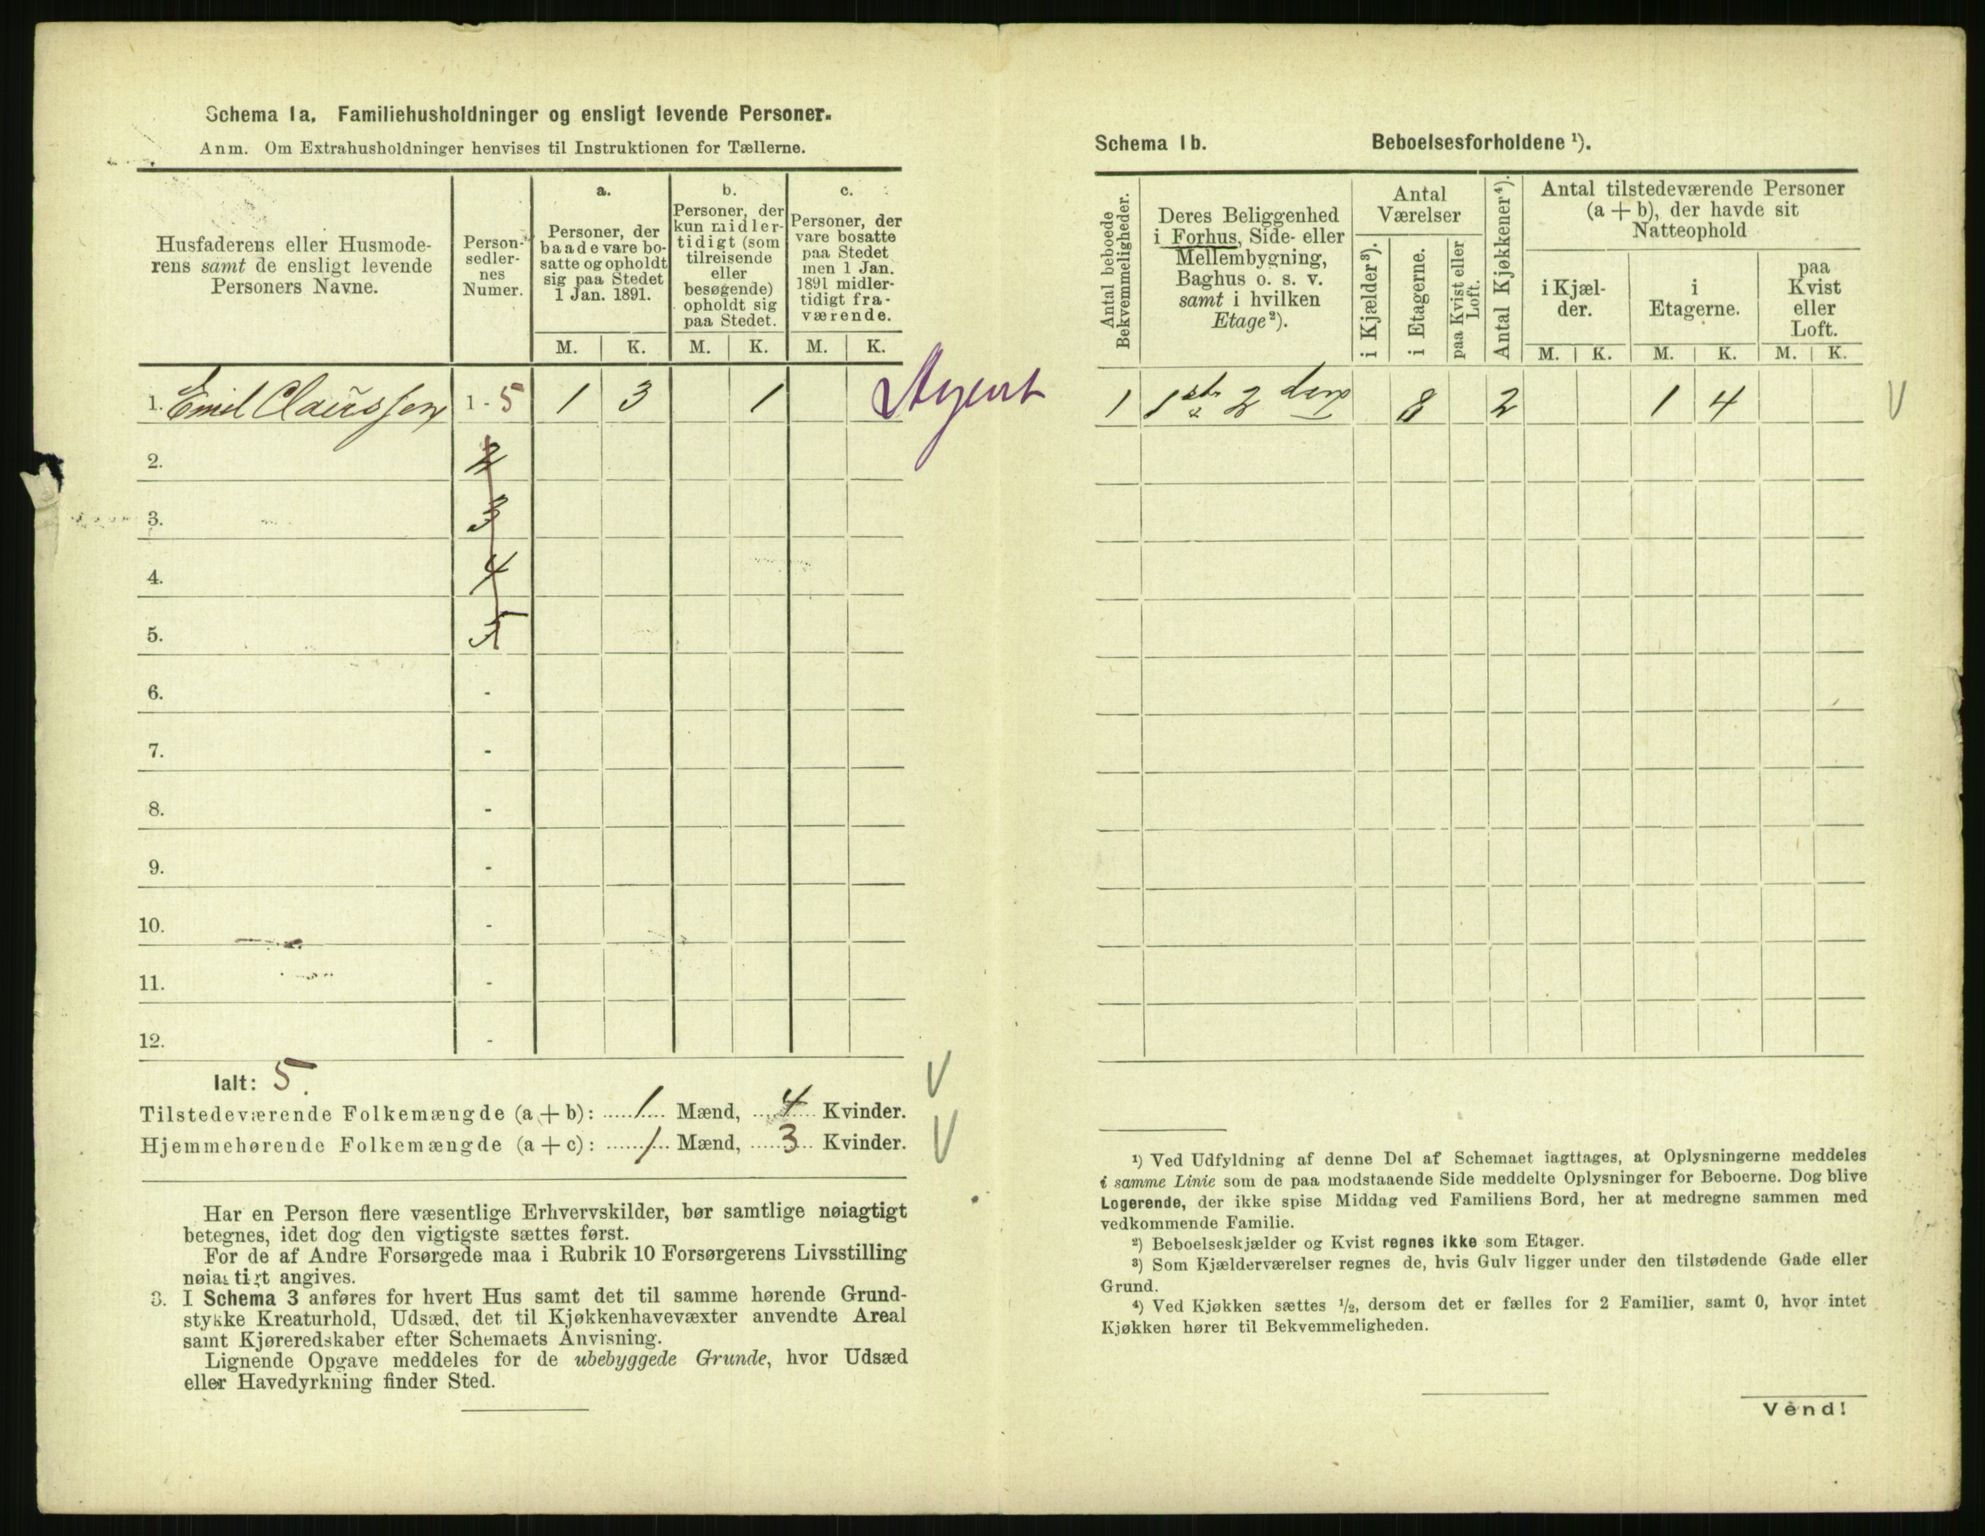 Schema 1a. Familiehusholdninger og ensligt levende Personer.
Anm. Om Extrahusholdninger henvises til Instruktionen for Tællerne.
Husfaderens eller Husmoderens samt de ensligt levende Personers Navne.
Personsedlernes Numer.
a.
Personer, der baade vare bosatte og opholdt sig paa Stedet 1 Jan. 1891.
b.
Personer, der kun midlertidigt (som tilreisende eller besøgende) opholdt sig paa Stedet.
c.
Personer, der vare bosatte paa Stedet men 1 Jan. 1891 midlertidigt fraværende.
M. K. M. K. M. K.
1. Emil Claussen 1 - 5 1 3 1 Agent
2. 2
3. 3
4. 4
5. 5
6. -
7. -
8. -
9. -
10. -
11. -
12. -
Ialt: 5.
Tilstedeværende Folkemængde (a + b): 1 Mænd, 4 Kvinder.
Hjemmehørende Folkemængde (a + c): 1 Mænd, 3 Kvinder.
Har en Person flere væsentlige Erhvervskilder, bør samtlige nøiagtigt
betegnes, idet dog den vigtigste sættes først.
For de af Andre Forsørgede maa i Rubrik 10 Forsørgerens Livsstilling
nøiagtigt angives.
3. I Schema 3 anføres for hvert Hus samt det til samme hørende Grund-
stykke Kreaturhold, Udsæd, det til Kjøkkenhavevæxter anvendte Areal
samt Kjøreredskaber efter Schemaets Anvisning.
Lignende Opgave meddeles for de ubebyggede Grunde, hvor Udsæd
eller Havedyrkning finder Sted.
Schema 1b. Beboelsesforholdene ¹).
Antal beboede Bekvemmeligheder.
Deres Beliggenhed i Forhus, Side- eller Mellembygning, Baghus o. s. v. samt i hvilken Etage²).
Antal Værelser
i Kjælder³).
i Etagerne.
paa Kvist eller Loft.
Antal Kjøkkener⁴).
Antal tilstedeværende Personer (a + b), der havde sit Natteophold
i Kjælder.
i Etagerne.
paa Kvist eller Loft.
M. K. M. K. M. K.
1 1ste 2 8 2 1 4
¹) Ved Udfyldning af denne Del af Schemaet iagttages, at Oplysningerne meddeles
i samme Linie som de paa modstaaende Side meddelte Oplysninger for Beboerne. Dog blive
Logerende, der ikke spise Middag ved Familiens Bord, her at medregne sammen med
vedkommende Familie.
²) Beboelseskjælder og Kvist regnes ikke som Etager.
³) Som Kjælderværelser regnes de, hvis Gulv ligger under den tilstødende Gade eller
Grund.
⁴) Ved Kjøkken sættes ½, dersom det er fælles for 2 Familier, samt 0, hvor intet
Kjøkken hører til Bekvemmeligheden.
Vend!